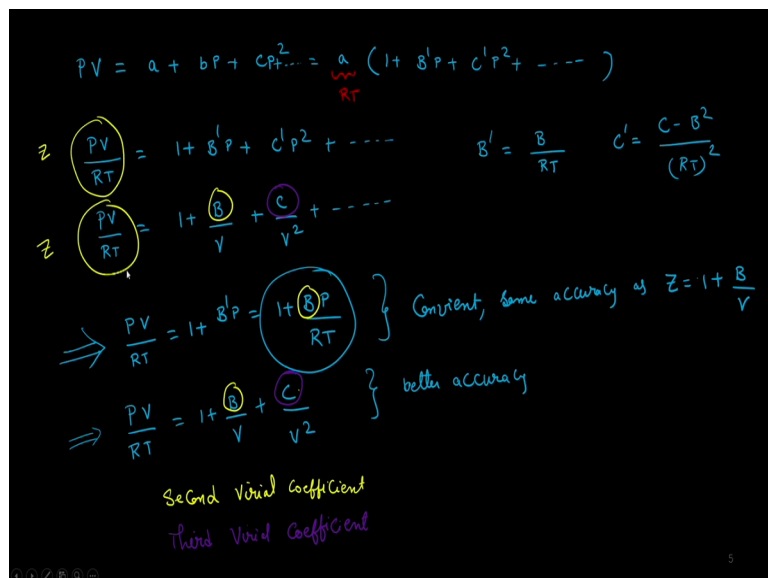 PV = a + bP + CP² + ---- = a ( 1 + B'P + C'P² + ----- )
RT
Z PV/RT = 1 + B'P + C'P² + ---- B' = B/RT C' = C - B²/(RT)²
Z PV/RT = 1 + B/V + C/V² + -----
⟹ PV/RT = 1 + B'P = 1 + BP/RT } Convient, same accuracy as Z = 1 + B/V
⟹ PV/RT = 1 + B/V + C/V² } better accuracy
Second Virial Coefficient
Third Virial Coefficient
5